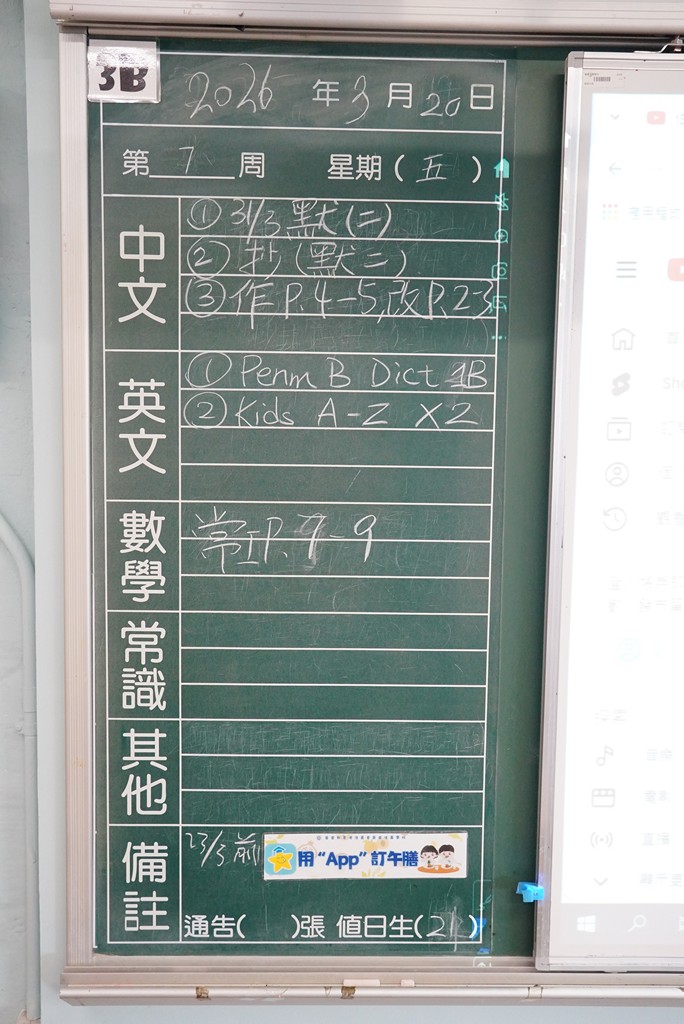 3B
2026 年 3 月 20 日
第 7 周 星期 ( 五 )
中文
① 31/3 默(二)
② 抄(默二)
③ 作P.4-5,改P.23
英文
① Penm B Dict 1B
② Kids A-Z X2
數學
常工P.7-9
常識
其他
備註
23/3前
用“App”訂午膳
通告( )張 值日生(21)